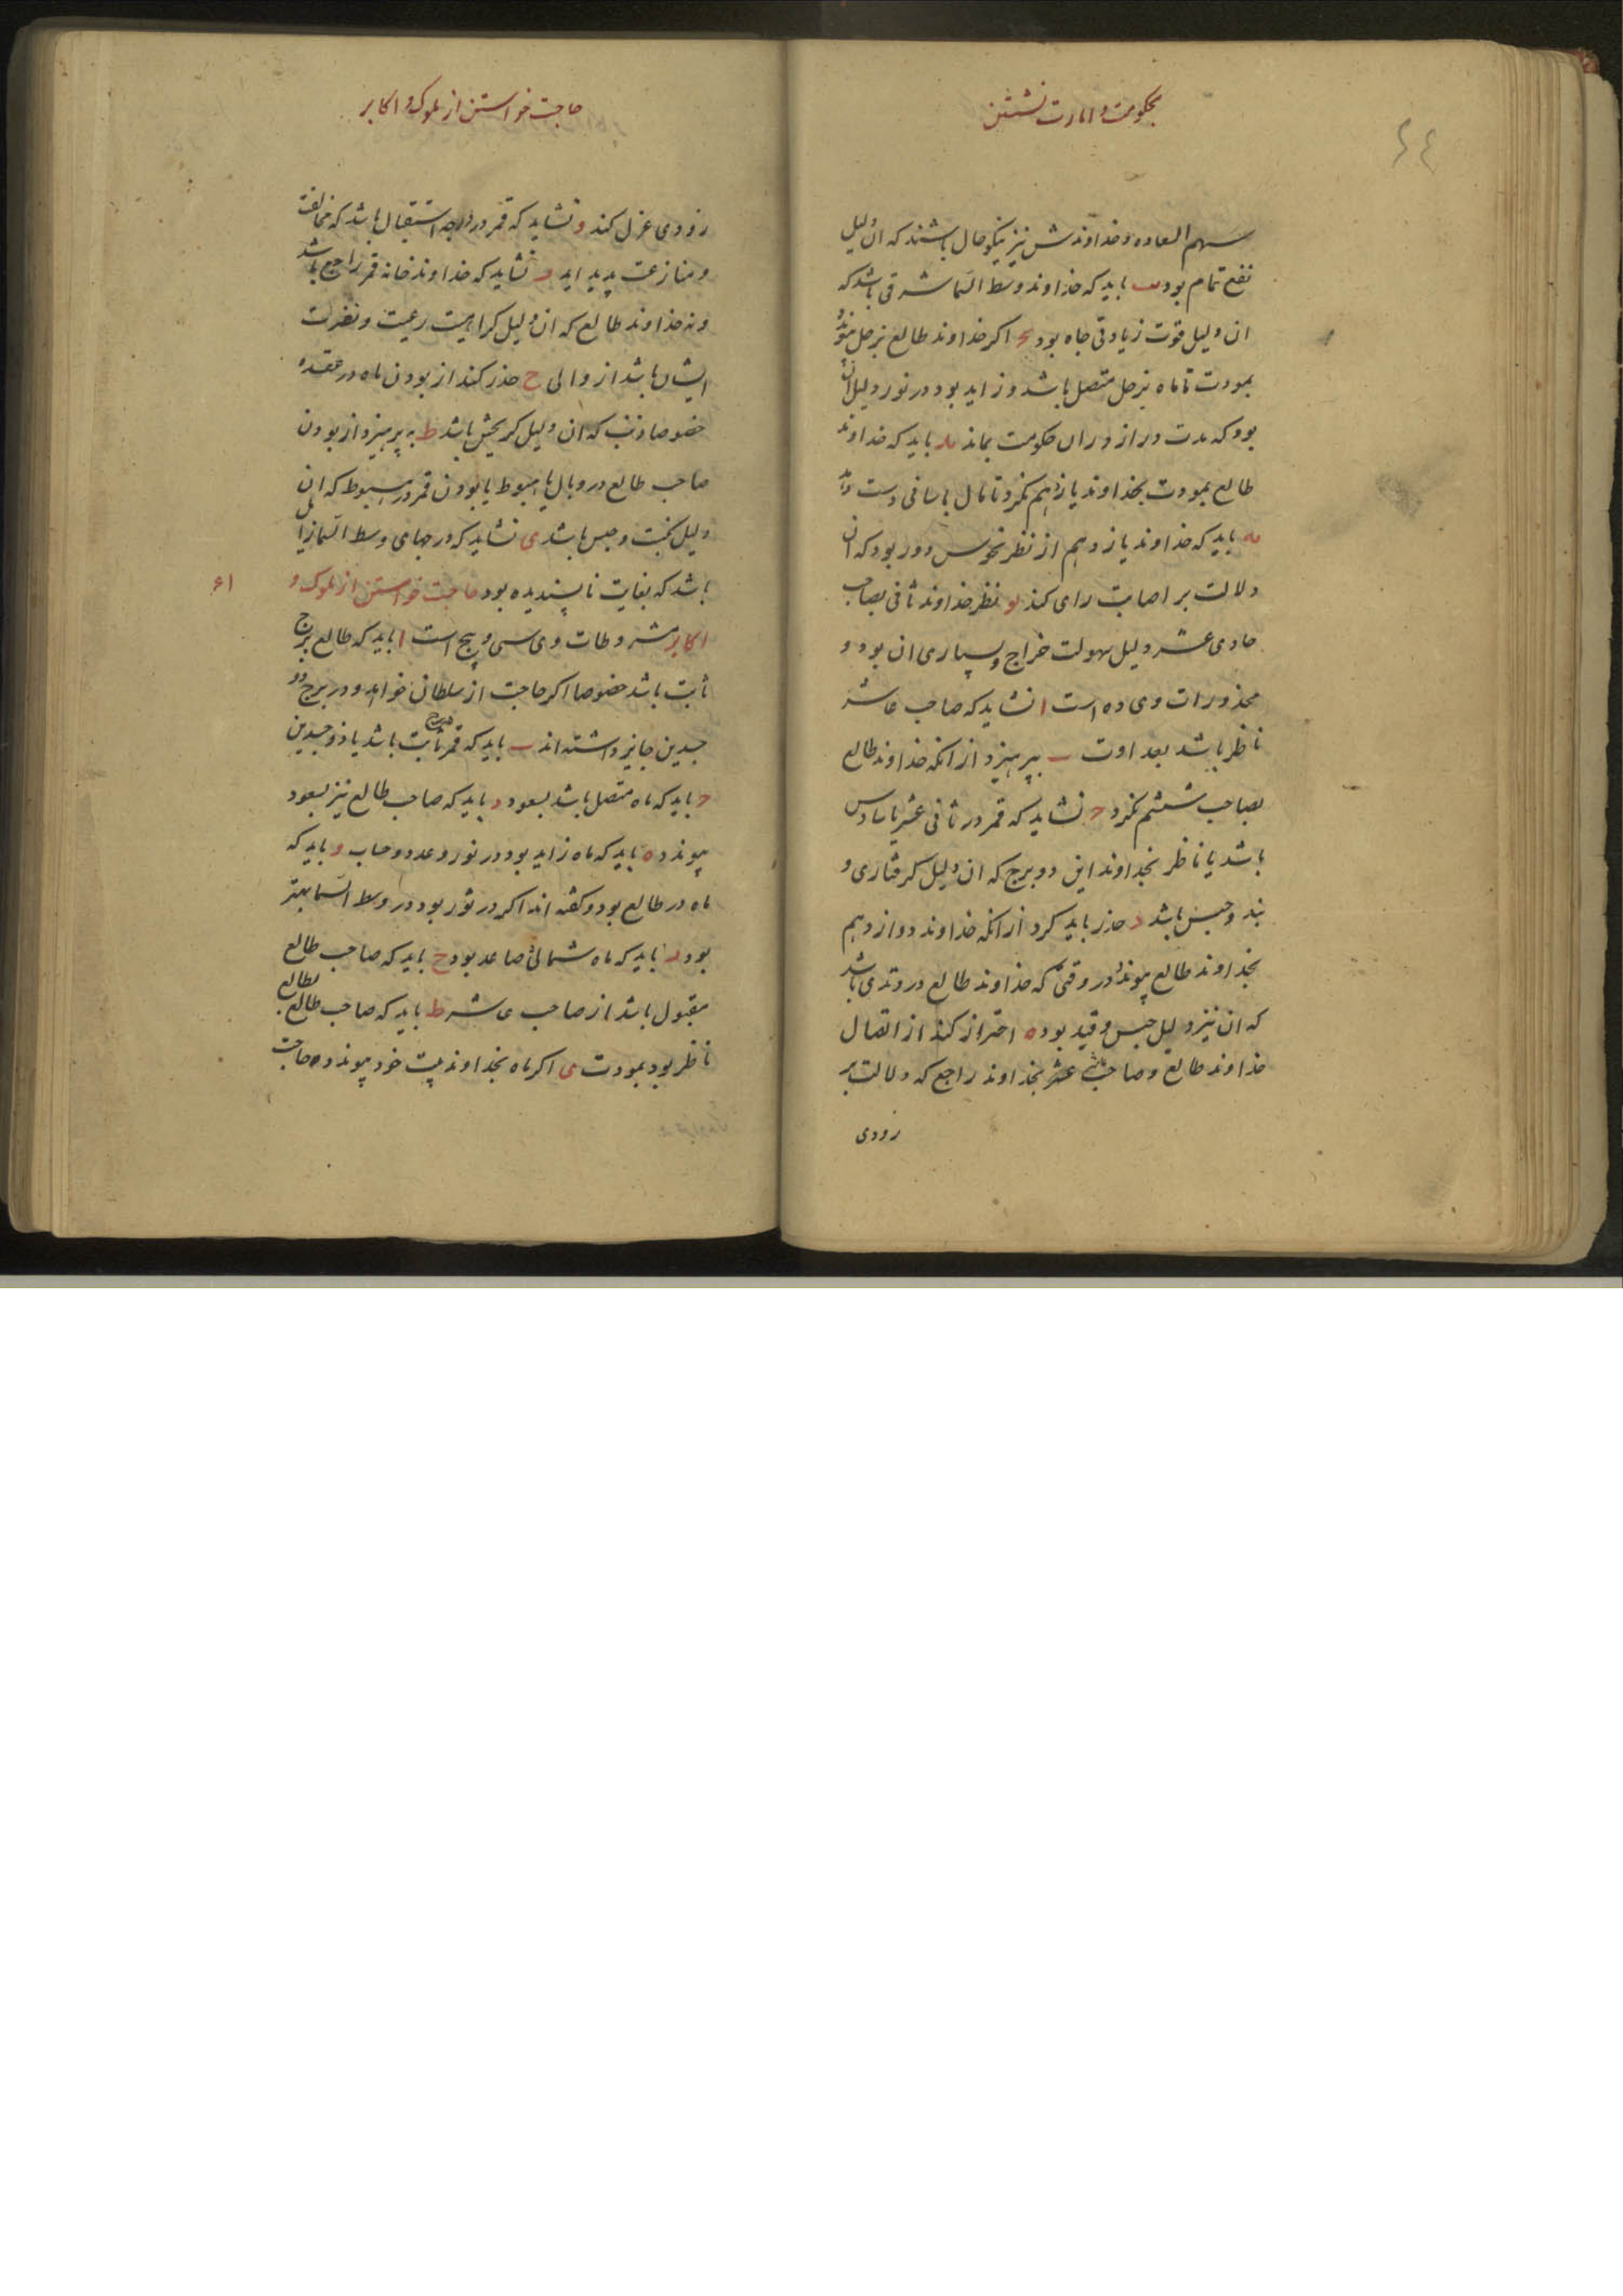 بحکومت و امارت نشستن
۶۴
سهم السعاده و خداوندش نیز نیکو حال باشند که ان دلیل
نفع تمام بود یب باید که خداوند وسط السما شرقی باشد که
ان دلیل قوت زیادتی جاه بود یج اکر خداوند طالع بزحل پیوندد
بمودت تا ماه بزحل متصل باشد و زاید بود در نور دلیل ان
بود که مدت دراز دران حکومت بماند ید باید که خداوند
طالع بمودت بخداوند یازدهم نکرد تا مال باسانی دست دهد
یه باید که خداوند یازدهم از نظر نحوس دور بود که ان
دلالت بر اصابت رای کند یو نظر خداوند ثانی بصاحب
حادی عشر دلیل سهولت خراج و بسیاری ان بود و
محذورات وی ده است ا نشاید که صاحب عاشر
ناظر باشد بعداوت ب بپرهیزد از انکه خداوند طالع
بصاحب ششم نکرد ج نشاید که قمر در ثانی عشر یا سادس
باشد یا ناظر بخداوند این دو برج که ان دلیل کرفتاری و
بند و حبس باشد د حذر باید کرد از انکه خداوند دوازدهم
بخداوند طالع پیوندد در وقتی که خداوند طالع در وتدی باشد
که ان نیز دلیل حبس و قید بود ه احتراز کند از اتصال
خداوند طالع و صاحب عشر بخداوند راجع که دلالت بر
زودی
حاجت خواستن از ملوک و اکابر
زودی عزل کند و نشاید که قمر در درجه استقبال باشد که مخالفت
و منازعت پدید اید ز نشاید که خداوند خانه قمر راجع باشد
و نه خداوند طالع که ان دلیل کراهیت رعیت و نفرت
ایشان باشد از والی ح حذر کند از بودن ماه در عقده
خصوصا ذنب که ان دلیل کریختن باشد ط به پرهیزد از بودن
صاحب طالع در وبال یا هبوط یا بودن قمر در هبوط که ان
دلیل نکبت و حبس باشد ی نشاید که در جای وسط السما زایل
باشد که بغایت ناپسندیده بود حاجت خواستن از ملوک و
۶۱
اکابر مشروطات وی سی و پنج است ا باید که طالع برج
ثابت باشد خصوصا اکر حاجت از سلطان خواهد و در برج ذو
جسدین جایز داشته اند ب باید که قمر در برج ثابت باشد یا ذو جسدین
ج باید که ماه متصل باشد بسعود د باید که صاحب طالع نیز بسعود
پیوندد ه باید که ماه زاید بود در نور و عدد و حساب و باید که
ماه در طالع بود و کفته اند اکر در ثور بود در وسط السما بهتر
بود ز باید که ماه شمالی صاعد بود ح باید که صاحب طالع
مقبول باشد از صاحب عاشر ط باید که صاحب طالع بطالع
ناظر بود بمودت ی اکر ماه بخداوند بیت خود پیوندد حاجت